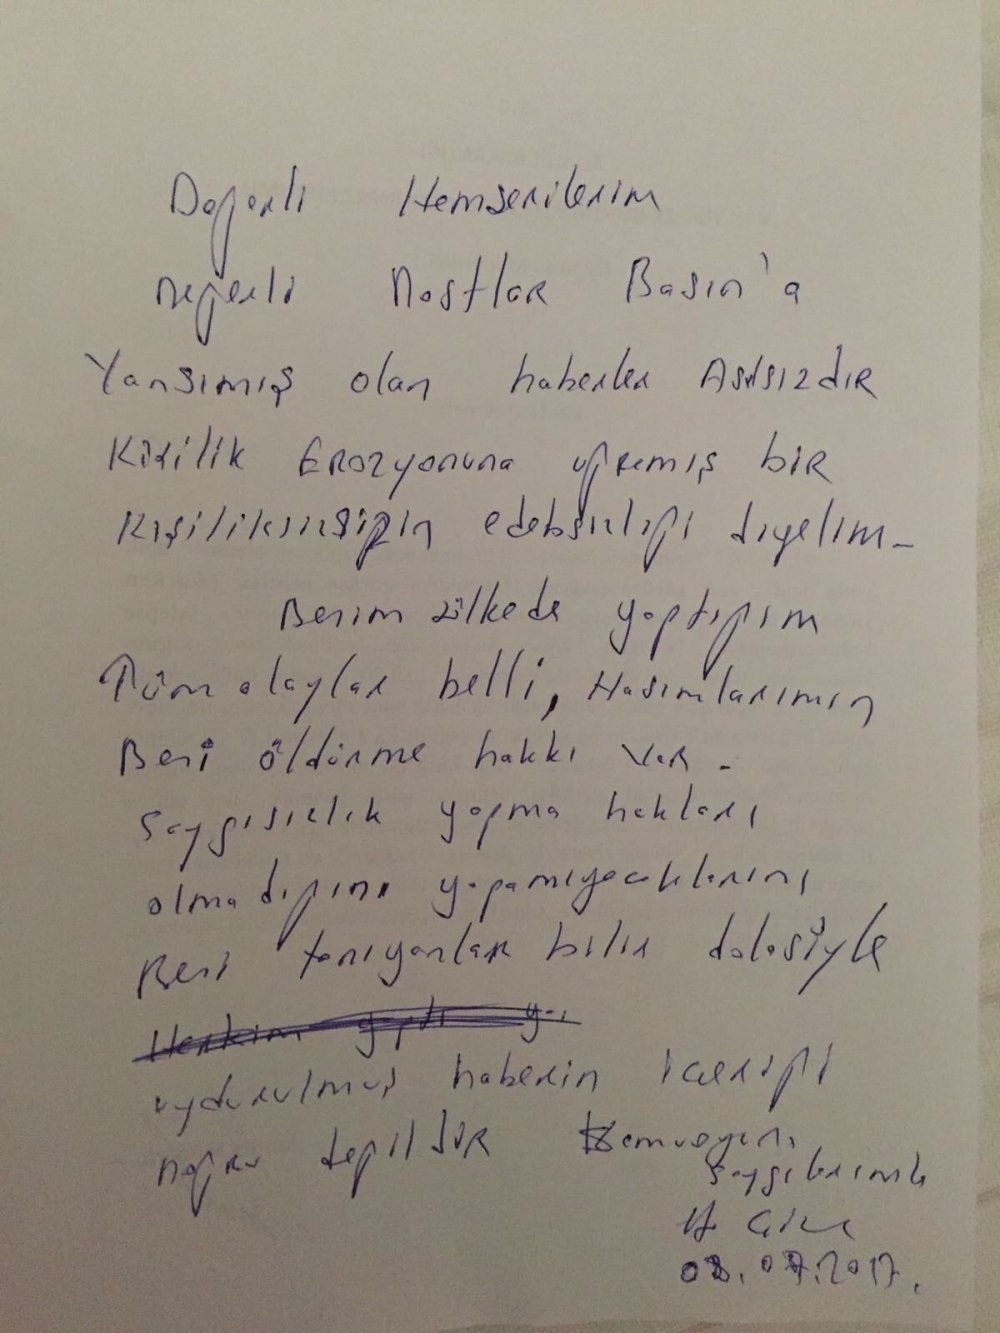 Değerli Hemşerilerim
Değerli Dostlar Basın'a
Yansımış olan haberler Asılsızdır
Kişilik Erozyonuna uğramış bir
Kişiliksizin edebsizliği diyelim-
Benim ülkede yaptığım
Tüm olaylar belli, Hasımlarımın
Beni öldürme hakkı var -
Saygısızlık yapma hakları
olmadığını yapamıyacaklarını
Beni tanıyanlar bilir dolasiyle
uydurulmuş haberin içeriği
Doğru değildir
Saygılarımla
08.07.2017.